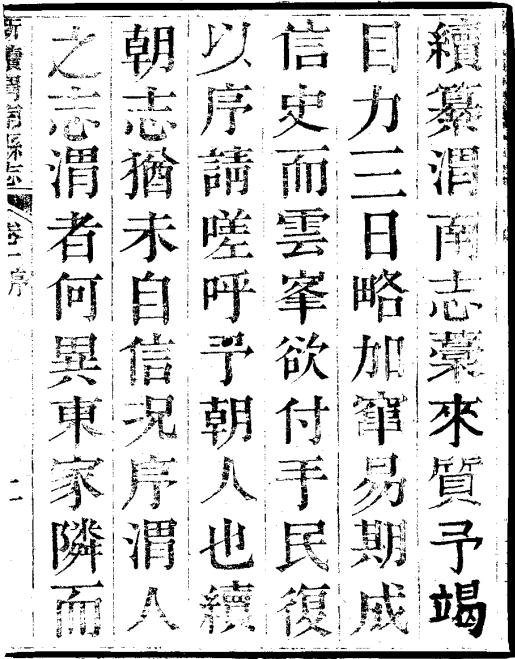 續纂渭南志藁來質予竭
目力三日略加竄易期成
信史而雲峯欲付手民復
以序請嗟呼予朝人也續
朝志猶未自信况序渭人
之志渭者何異東家隣而
新續渭南縣志 卷一序 二